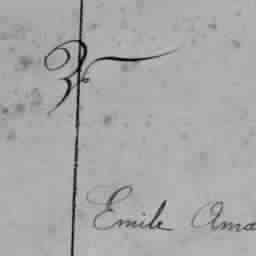 Emile Ama